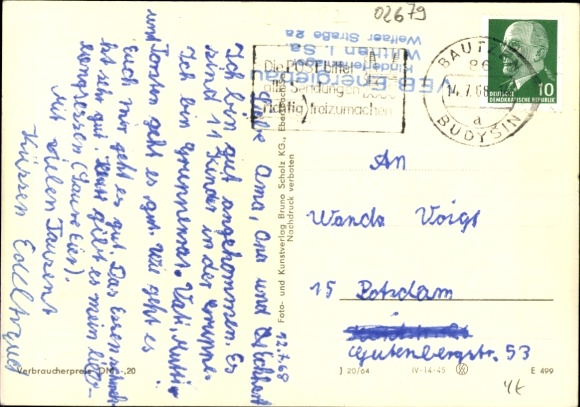 02679
VEB Energiebau
Kinderferienlager
Wilthen i. Sa.
Weifaer Straße 2a
Die POST bittet
alle Sendungen
richtig freizumachen
BAUTZEN
14.7.68
a
BUDYŠIN
10
DEUTSCHE
DEMOKRATISCHE REPUBLIK
12.7.68
Liebe Oma, Opa und
Ich bin gut angekommen. Es
sind 11 Kinder in der Gruppe.
Ich bin Gruppenrat. Vati, Mutti
und Torsten geht es gut. Wie geht es
Euch mir geht es gut. Das Essen schmeckt
sehr gut. Heut gibt es mein
(Saure Eier).
Mit vielen Tausent
Küssen Edeltraud
An
Wanda Voigt
15 Potsdam
Gutenbergstr. 53
Foto- und Kunstverlag Bruno Scholz KG., Ebersbach
Nachdruck verboten
Verbraucherpreis DM -,20
J 20/64 IV-14-45
E 499
4€